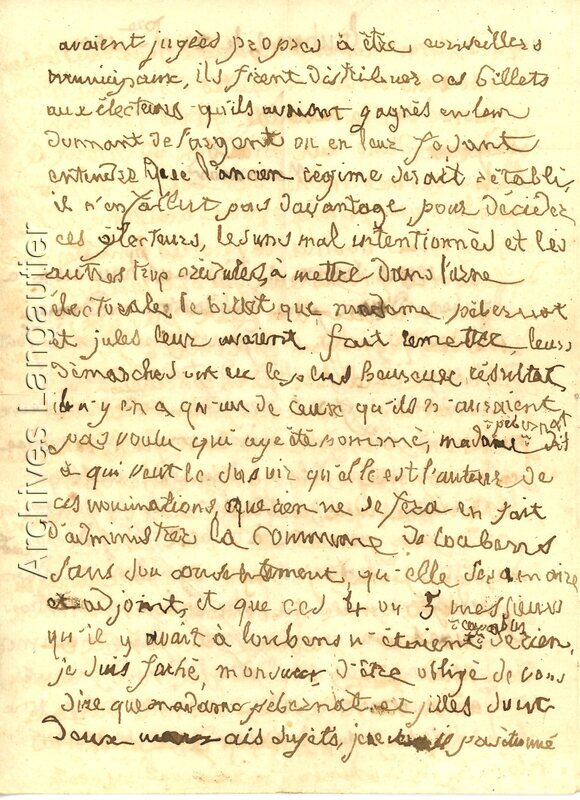 avaient jugées propres à être conseillers
municipaux, ils firent distribuer ces billets
aux électeurs qu'ils avaient gagnés en leur
donnant de l'argent ou en leur fesant
entendre que l'ancien régime serait rétabli,
il n'en fallut pas davantage pour décider
ces électeurs, les uns mal intentionnés et les
autres trop crédules, à mettre dans l'urne
électorale le billet que madame pébernat
et jules leur avaient fait remettre, leurs
démarches ont eu le plus heureux résultat,
il n'y en a qu'un de ceux qu'ils n'auraient
pas voulu qui aye été nommé, madame pébernat dit
à qui veut le savoir qu'elle est l'auteur de
ces nominations, que rien ne se fera en fait
d'administrer la commune de loubens
sans son consentement, qu'elle sera maire
et adjoint, et que ces 4 ou 5 messieurs
qu'il y avait à loubens n'étoient capables de rien,
je suis faché, monsieur, d'être obligé de vous
dire que madame pébernat et jules sont
deux mauvais sujets, je
Archives Langautier